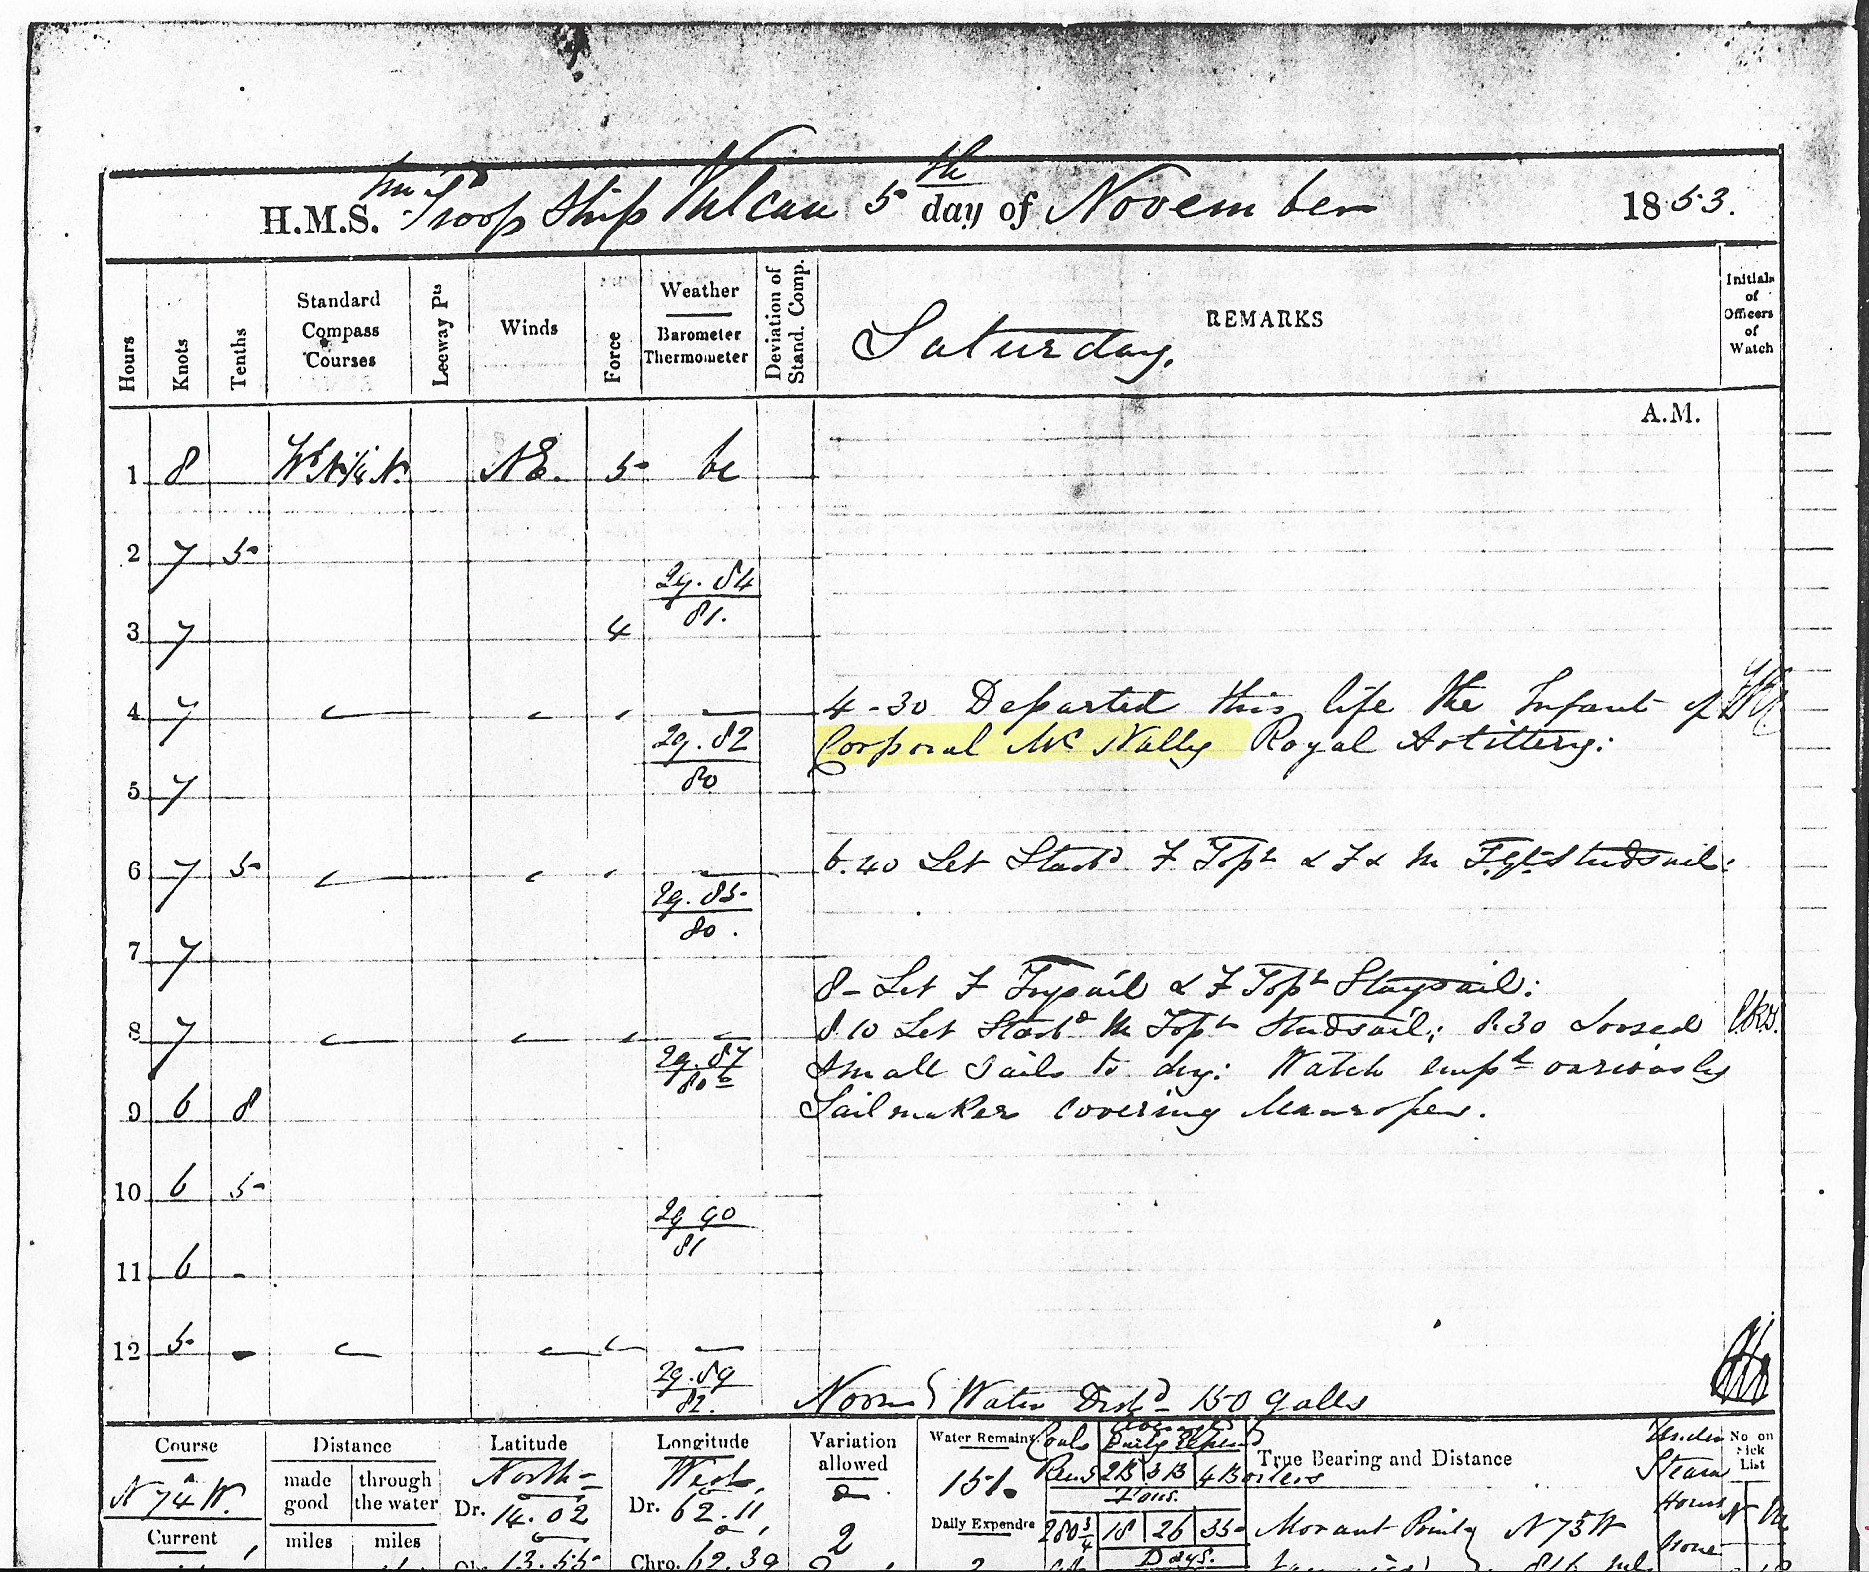 H.M.S. Troop Ship Vulcan 5th day of November 1853.
Hours Knots Tenths Standard Compass Courses Leeway Pts Winds Force Weather Barometer Thermometer Deviation of Stand. Comp. REMARKS Initials of Officers of Watch
Saturday,
A.M.
1 8 N.E. 5 bc
2 7 5
29.84
81.
3 7 4
4 7 4-30 Departed this life the Infant of
29.82 Corporal Mc Nally Royal Artillery:
80
5 7
6 7 5 6.40 Set Starbd F Topt & F & M Tgt Studsails:
29.85
80.
7 7
8- Set F Trysail & F Topt Staysail:
8 7 8.10 Set Starbd M Topt Studsail; 8.30 Loosed
29.87 small sails to dry: Watch empd variously
80
9 6 8 Sailmaker covering Manropes.
10 6 5
29 90
81
11 6 -
12 5 -
29.89
82.
Noon Water Distd 150 galls
Course Distance Latitude Longitude Variation allowed Water Remaing Coals Daily Expend True Bearing and Distance Under Steam No on Sick List
made good through the water North West 2B 3B 4Boilers
N 74 W. Dr. 14.02 Dr. 62.11 151. Tons.
Current miles miles 2 Daily Expendre 280 3/4 18 26 35 Morant Point N 75 W Hours
13.55 Chro. 62.39 Days. None